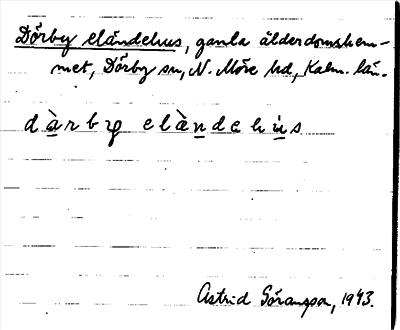 Dörby eländehus, gamla ålderdomshem-
met, Dörby sn, N. Möre hd, Kalm. län.
dàrby elàndehùs
Astrid Göransson, 1943.